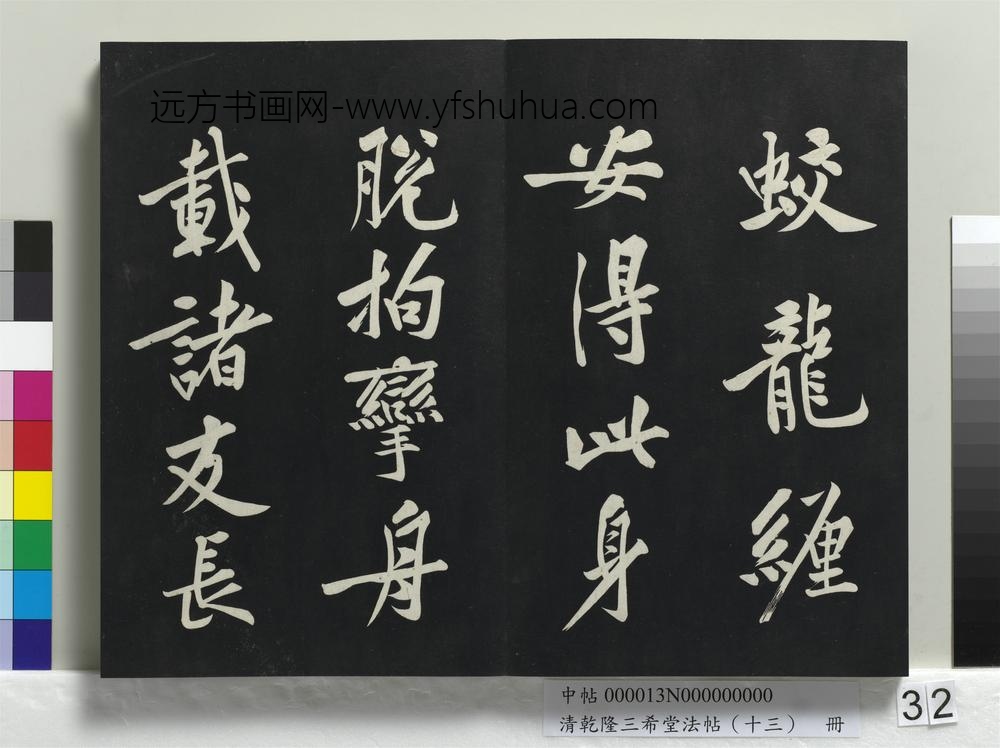 远方书画网-www.yfshuhua.com
蛟龍纏
安得此身
脱拘攣舟
載諸友長
中帖 000013N000000000
清乾隆三希堂法帖（十三） 冊
32